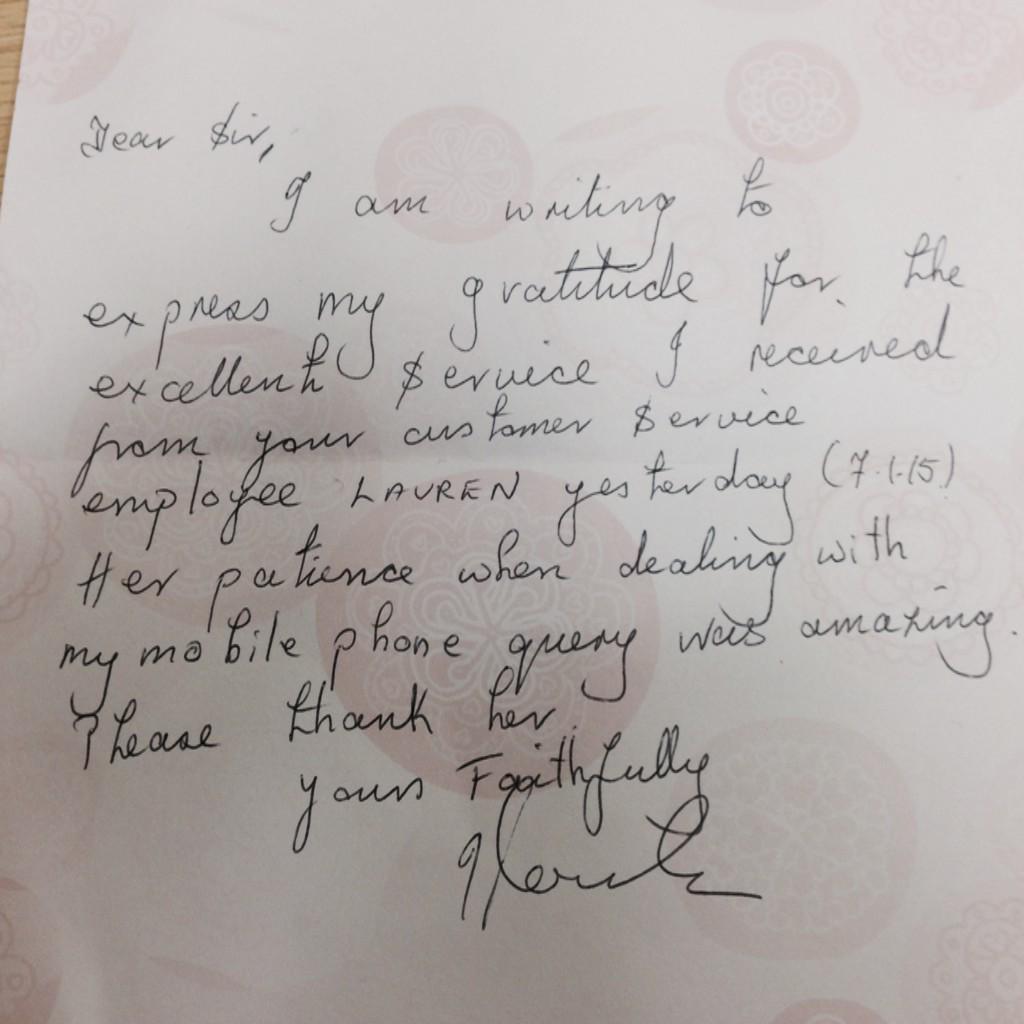 Dear Sir,
I am writing to
express my gratitude for. the
excellent service I received
from your customer service
employee LAUREN yesterday (7.1.15)
Her patience when dealing with
my mobile phone query was amazing.
Please thank her.
yours Faithfully